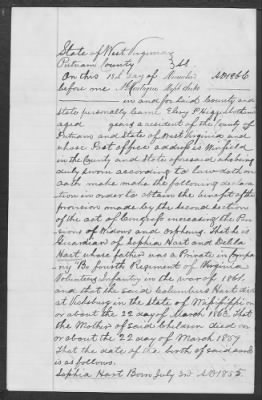 State of West Virginia
Putnam County } SS
On this 13th day of November AD 1866
before me
in and for Said County and
State personally Came
aged years a resident of the County of
Putnam and State of West Virginia and
whose Post office address is Winfield
in the County and State aforesaid who being
duly sworn according to law doth on
oath make make the following declara
tion in order to obtain the benefit of the
provision made by the Second Section
of the act of Congress increasing the Pen
sions of Widows and orphans, That he is
Guardian of Sophia Hart and Della
Hart whose father was a Private in Compa
ny "B" fourth Regiment of Virginia
Volunteer Infantry in the war of 1861
and that the Said Columbus Hart died
at Vicksburg in the State of Mississippi on
or about the 22 day of March 1863 That
the Mother of Said Children died on
or about the 22 day of March 1857
That the date of the birth of said wards
is as follows.
Sophia Hart Born July 3rd AD 1855